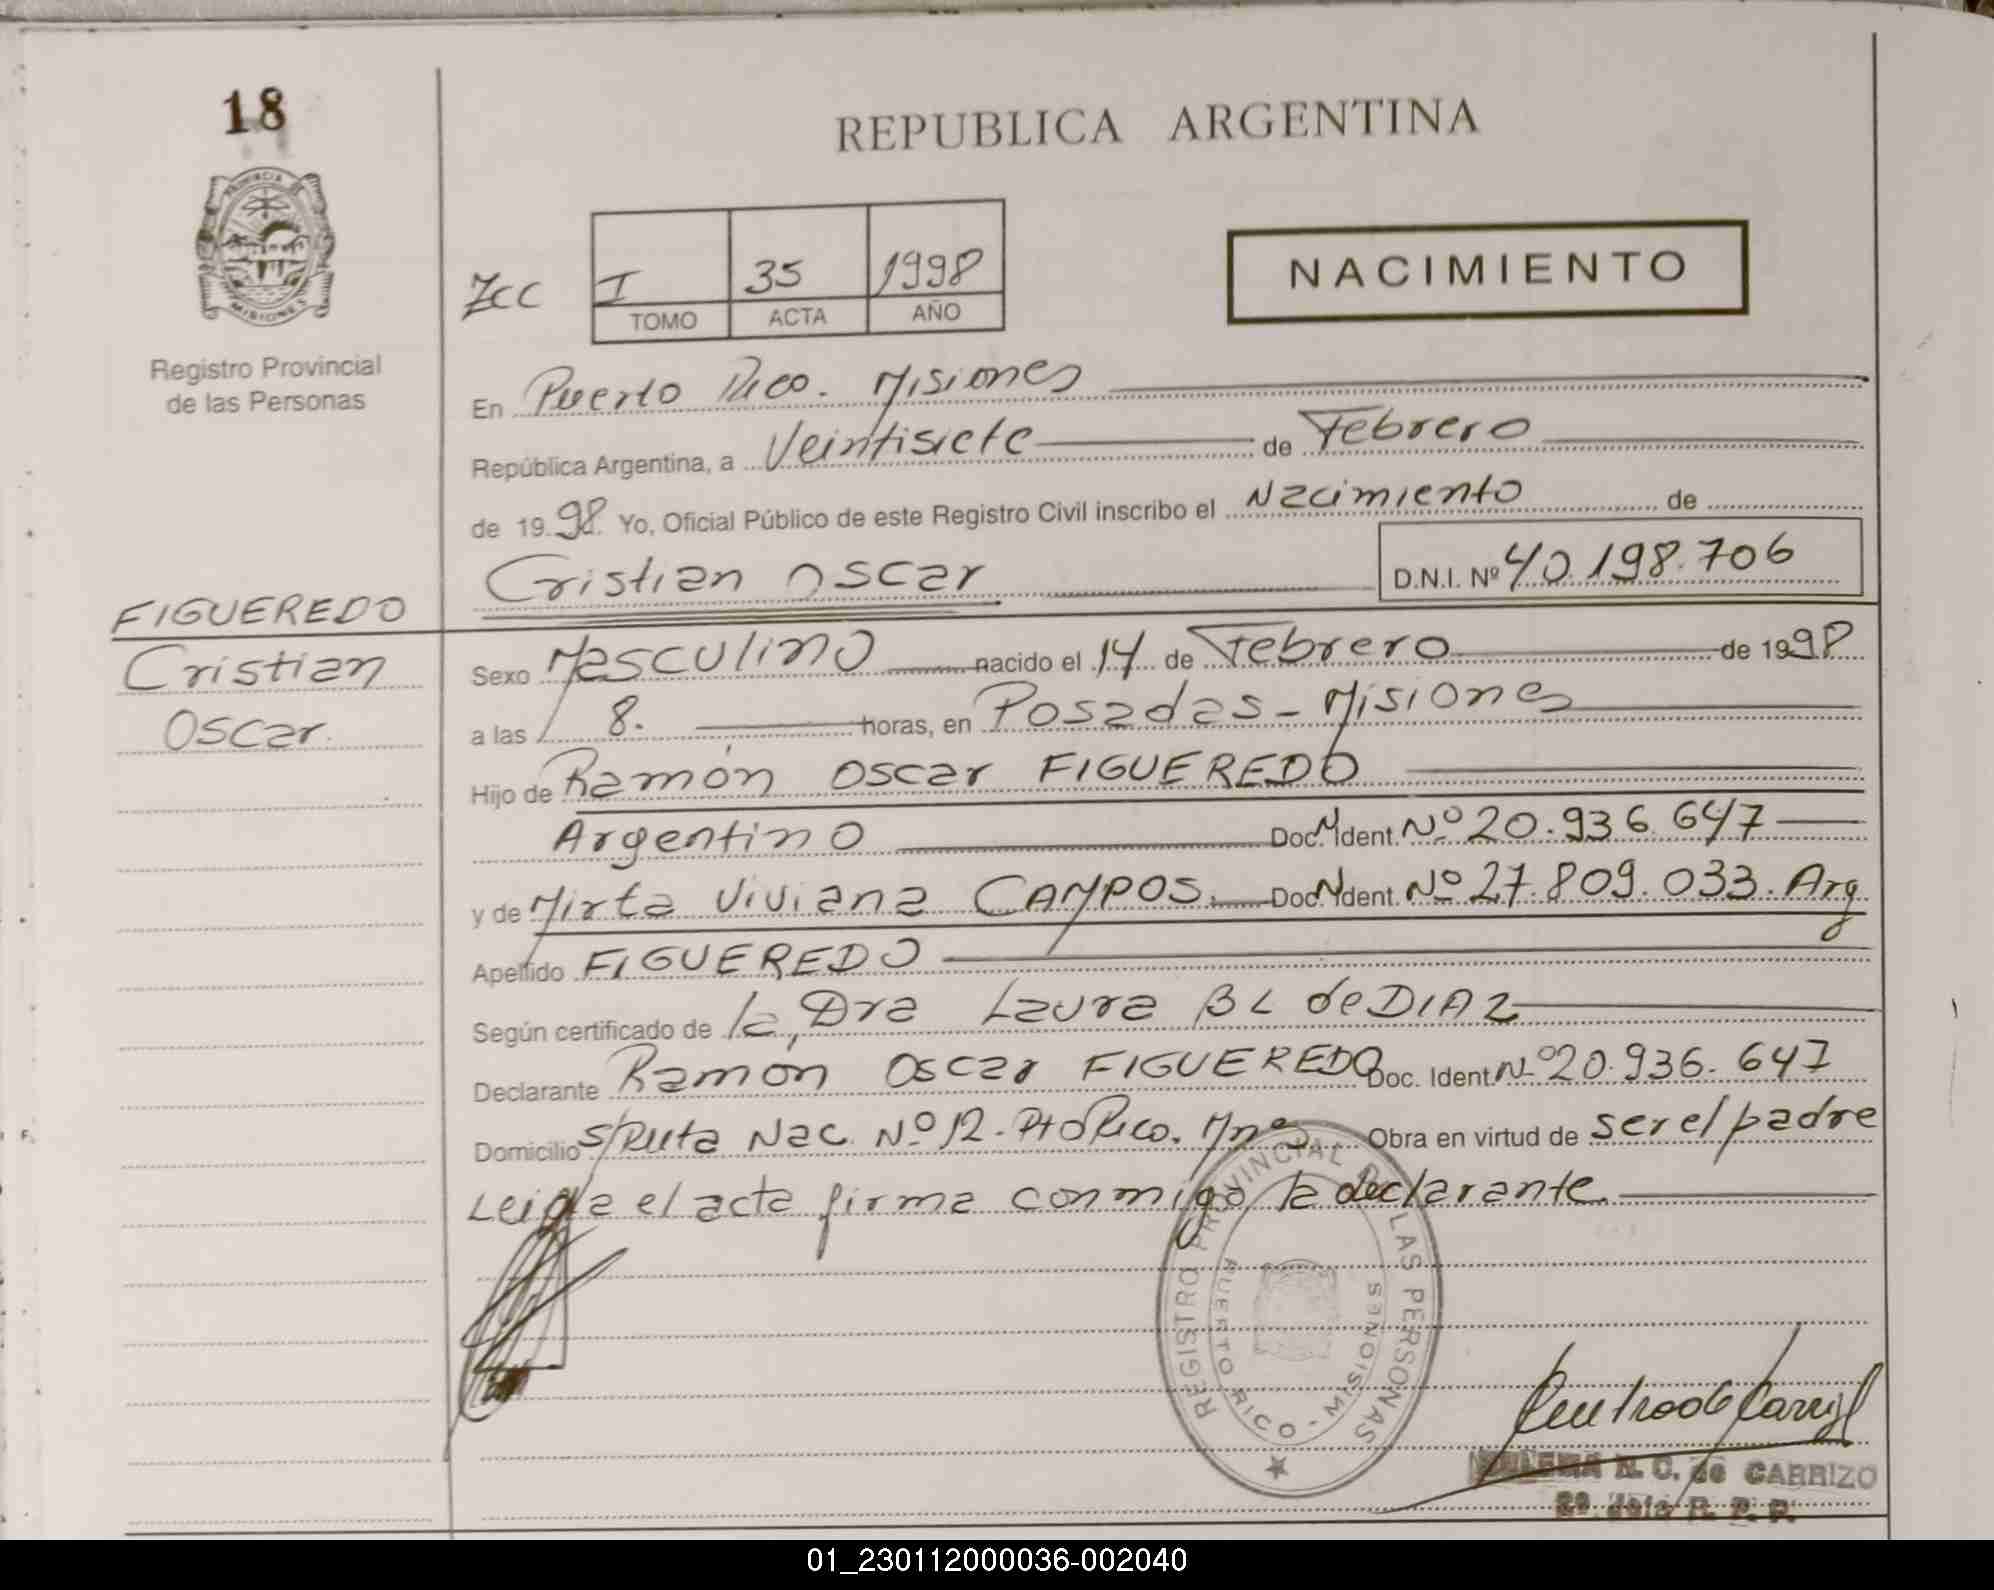 18
REPUBLICA ARGENTINA
PROVINCIA DE
MISIONES
Registro Provincial
de las Personas
Zcc
I 35 1998
TOMO ACTA AÑO
NACIMIENTO
En Puerto Rico. Misiones
República Argentina, a Veintisiete de Febrero
de 1998. Yo, Oficial Público de este Registro Civil inscribo el Nacimiento de
Cristian Oscar D.N.I. Nº 40.198.706
FIGUEREDO
Cristian
Oscar
Sexo Masculino nacido el 14 de Febrero de 1998
a las 8. horas, en Posadas - Misiones
Hijo de Ramón Oscar FIGUEREDO
Argentino Doc. N Ident. Nº 20.936.647
y de Mirta Viviana CAMPOS. Doc. N Ident. Nº 27.809.033. Arg
Apellido FIGUEREDO
Según certificado de la Dra Laura BL de DIAZ
Declarante Ramón Oscar FIGUEREDO Doc. Ident. Nº 20.936.647
Domicilio S/Ruta Nac. Nº 12. Pto Rico. Mnes Obra en virtud de ser el padre
Leida el acta firma conmigo la declarante.
REGISTRO PROVINCIAL DE LAS PERSONAS
PUERTO RICO - MISIONES
N. C. de CARRIZO
R. P. P.
01_230112000036-002040